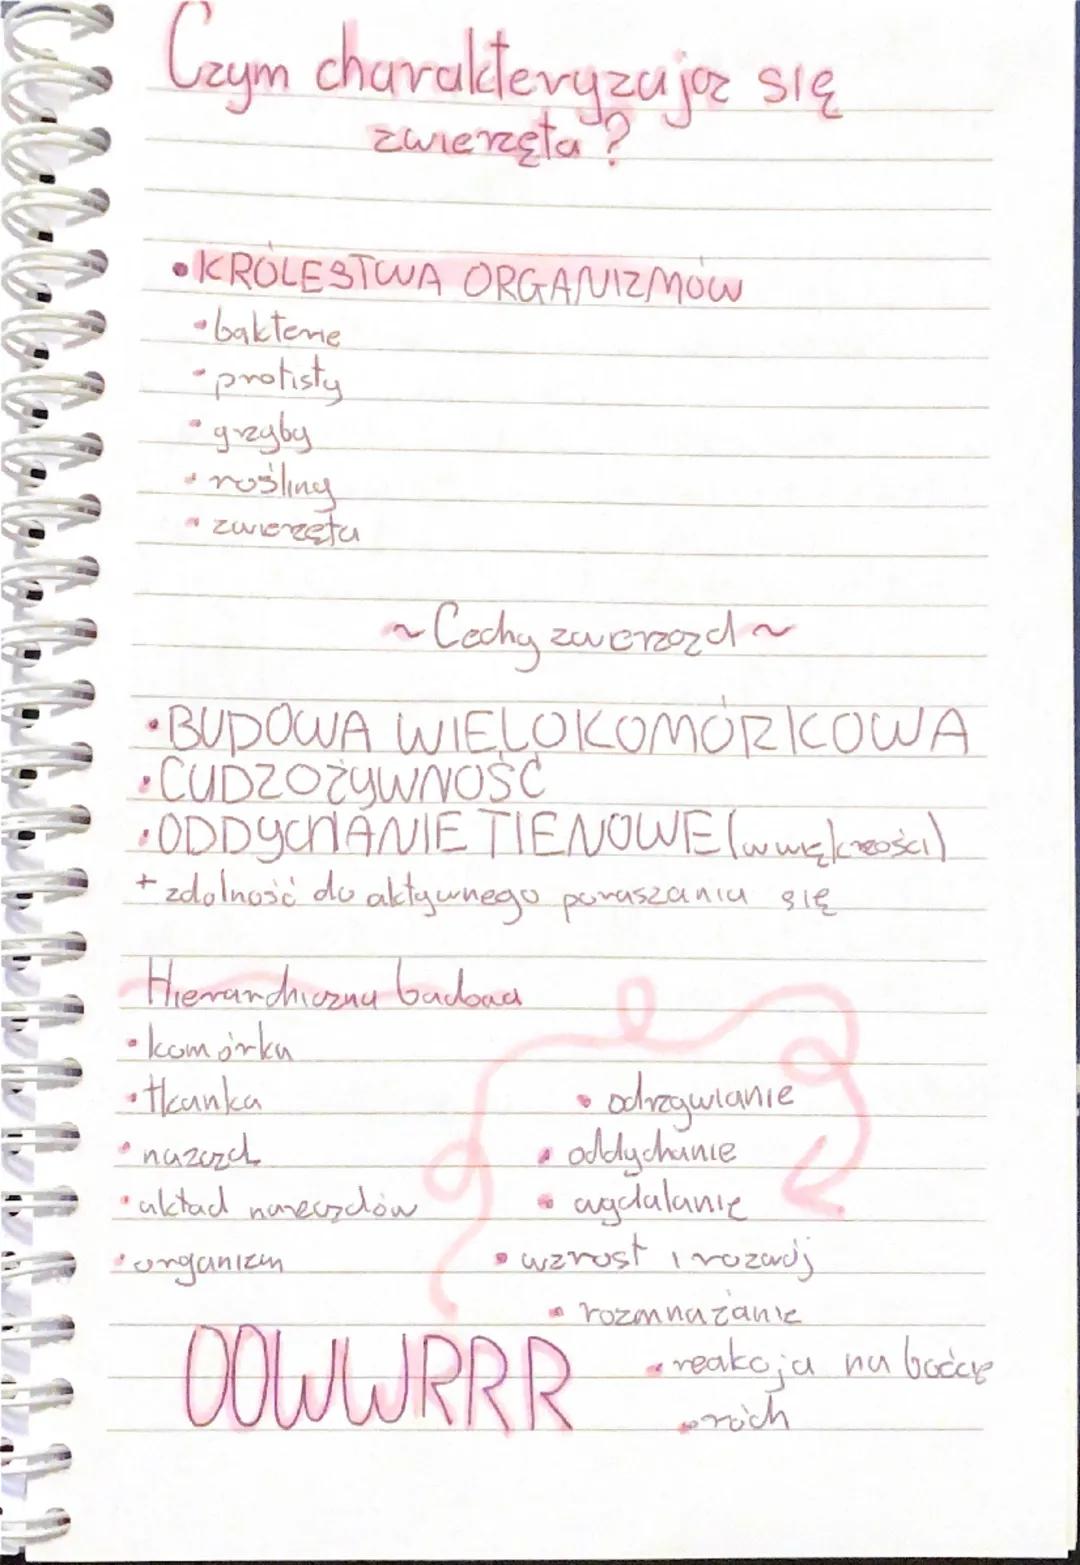 Czym charakteryzują się
zwierzęta?
•KRÓLESTWA ORGANIZMÓW
•bakterie
•protisty
•grzyby
•rośliny
•zwierzęta
~Cechy zwierząd~
•BUDOWA WIELOKOMÓRKOWA
•CUDZOŻYWNOŚĆ
•ODDYCHANIE TLENOWE (w większości)
+ zdolność do aktywnego poruszania się
Hierarchiczna budowa
•komórka
•tkanka
•narząd
•układ narządów
•organizm
•odrzywianie
•oddychanie
•wydalanie
•wzrost i rozwój
•rozmnażanie
•reakcja na bodźce
•ruch
OOWWRRR